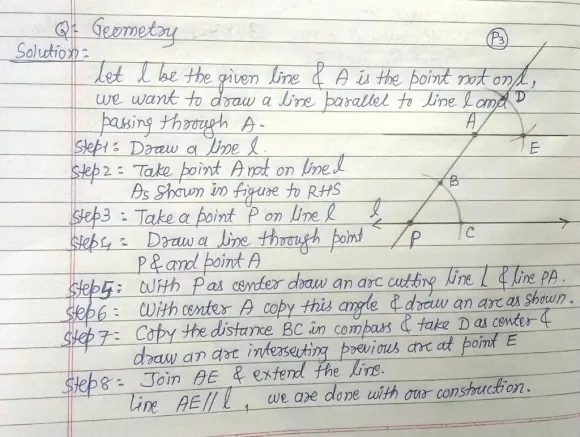 Q= Geometry
P3
Solution=
Let l be the given line & A is the point not on l,
we want to draw a line parallel to line l and
passing through A.
Step1= Draw a line l.
Step2= Take point A not on line l
As shown in figure to RHS
Step3= Take a point P on line l
Step4= Draw a line through point
P & and point A
Step5: With P as center draw an arc cutting line l & line PA.
Step6= With center A copy this angle & draw an arc as shown.
Step7= Copy the distance BC in compass & take D as center &
draw an arc intersecting previous arc at point E
Step8= Join AE & extend the line.
line AE//l, we are done with our construction.
D
A
E
B
l
P
C